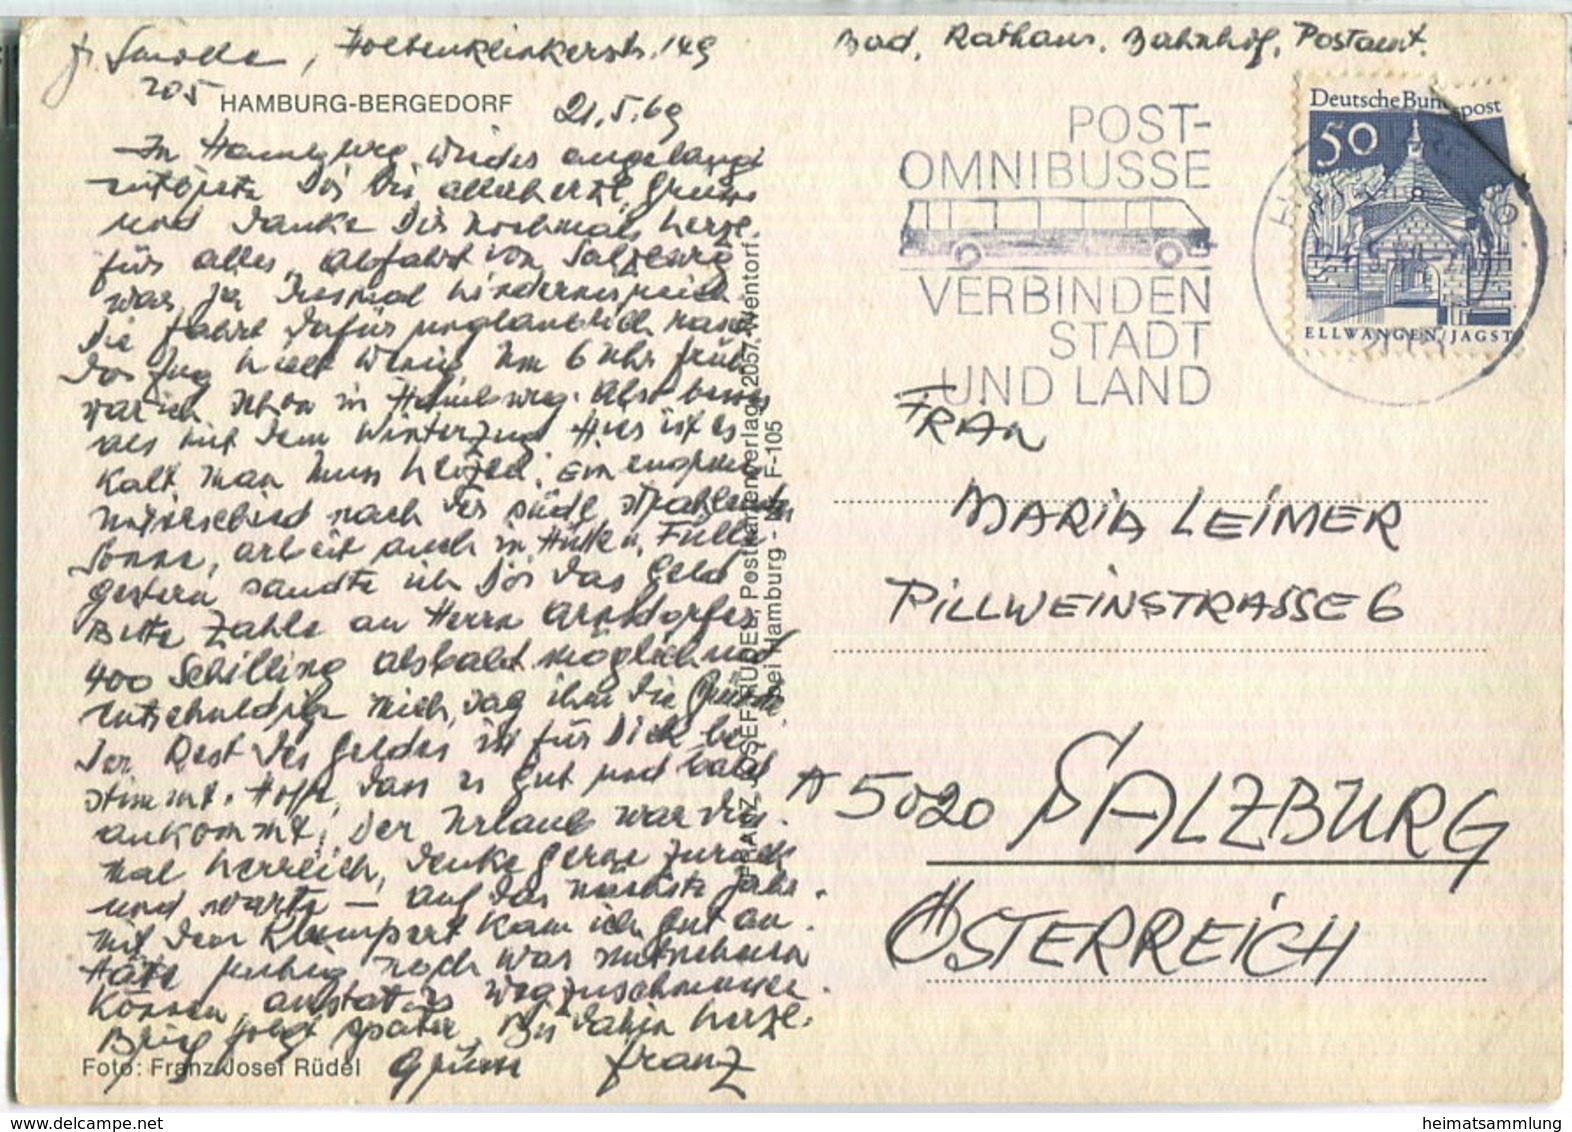 Holtenklinkerstr. 149
Bad, Rathaus, Bahnhof, Postamt.
205
HAMBURG-BERGEDORF
21.5.69
In Hamburg wieder angelangt
Dir die allerherzl. Grüsse
und danke Dir nochmals herzl.
für alles, Abfahrt von Salzburg
war ja diesmal hindernisreich.
Die Fahrt dafür unglaublich rasch
der Zug hielt wenig um 6 Uhr früh
war ich schon in Hamburg. Also besser
als mit dem Winterzug. Hier ist es
kalt man muss heizen. Ein
Unterschied nach der südl. strahlenden
Sonne, Arbeit auch in Hülle u. Fülle
gestern sandte ich Dir das Geld
Bitte zahle an Herrn Arnsdorfer
400 Schilling alsbald möglich und
entschuldige mich, sag ihm die Gründe
Der Rest des Geldes ist für Dich be-
stimmt. Hoffe, dass es gut und bald
ankommt, Der Urlaub war dies-
mal herrlich, denke gerne zurück
und warte – auf das nächste Jahr.
Mit dem Klumpert kam ich gut an.
Häte ruhig noch was mitnehmen
können, anstatt es wegzuschmeissen.
Brief folgt später, Bis dahin herzl.
Grüsse Franz
Foto: Franz Josef Rüdel
FRANZ JOSEF RÜDEL, Postkartenverlag, 2057 Wentorf
bei Hamburg - F-105
POST-
OMNIBUSSE
VERBINDEN
STADT
UND LAND
Deutsche Bundespost
50
ELLWANGEN/JAGST
FRAU
MARIA LEIMER
PILLWEINSTRASSE 6
A 5020 SALZBURG
ÖSTERREICH
heimatsammlung.de